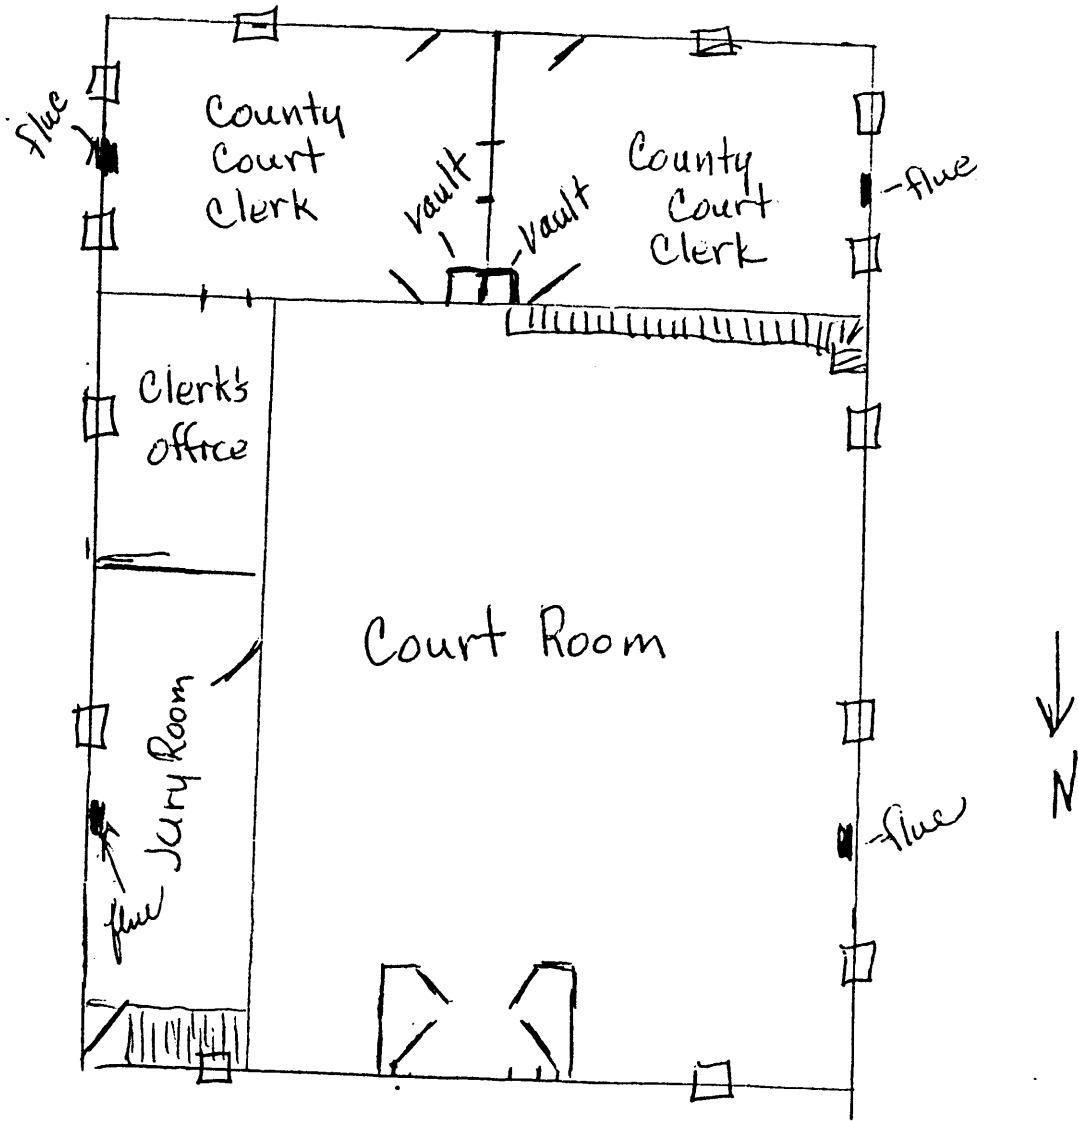 flue
County
Court
Clerk
vault
vault
County
Court
Clerk
flue
Clerk's
office
Court Room
Jury Room
N
flue
flue